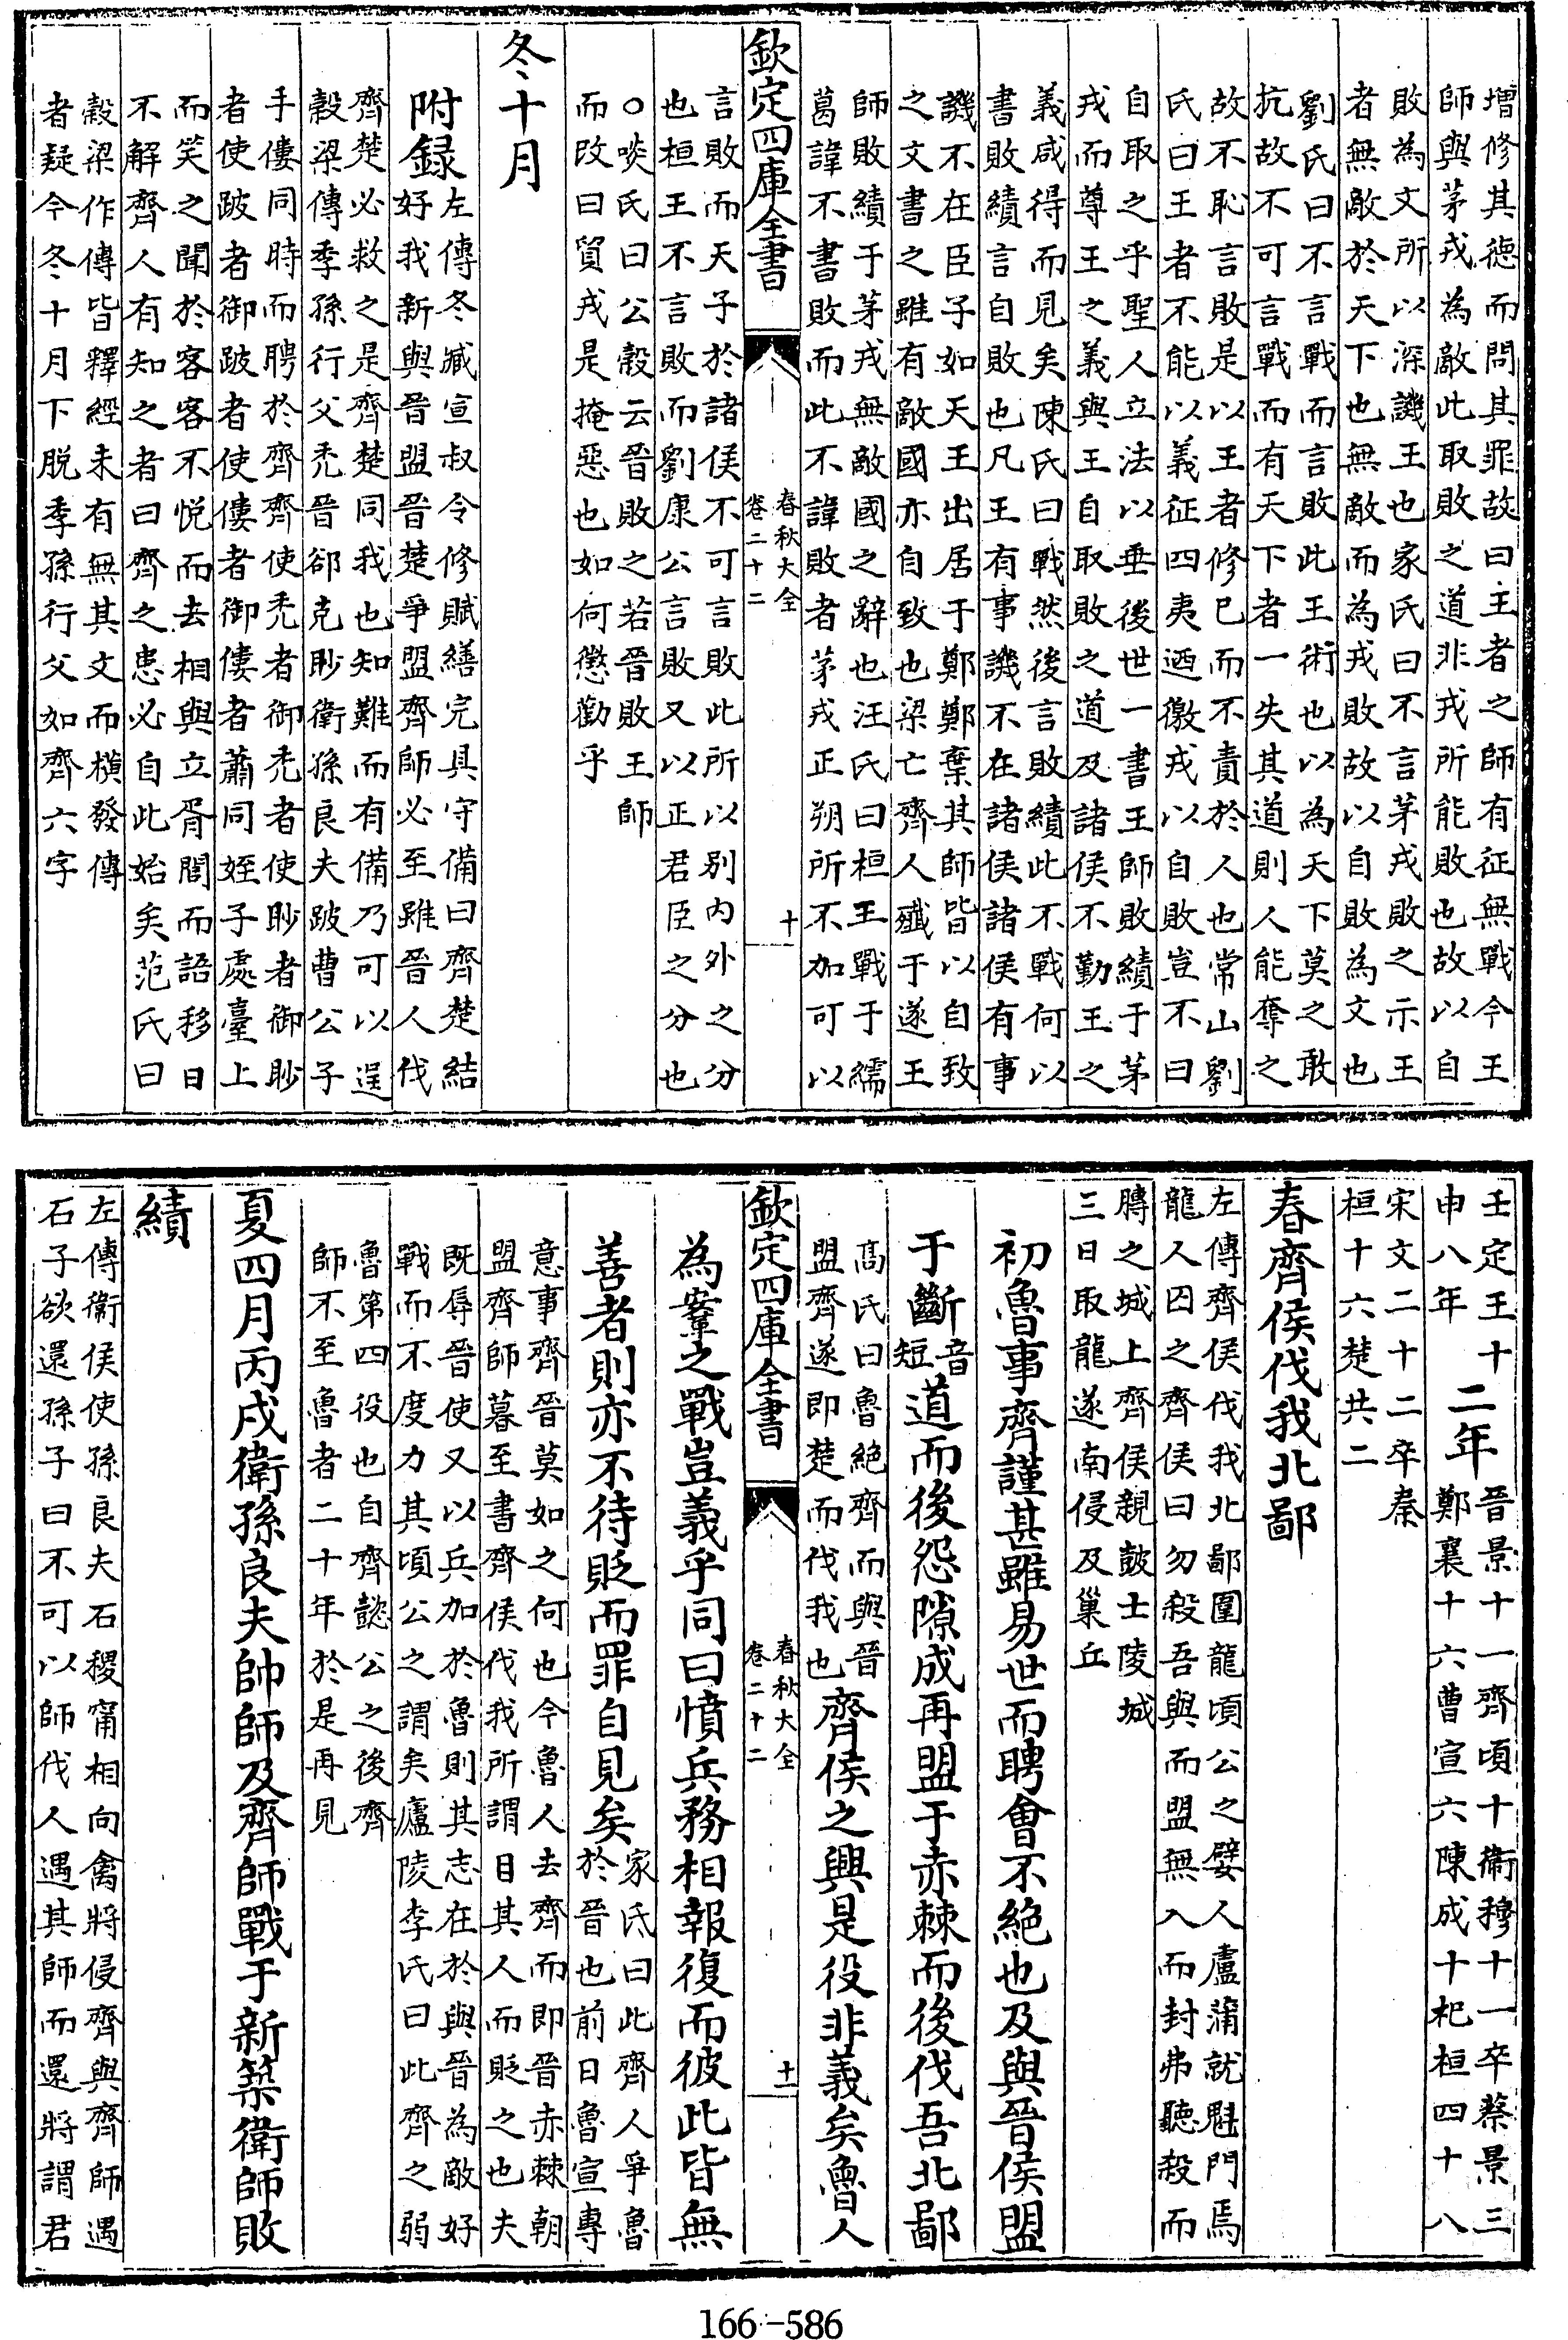 增修其德而問其罪故曰王者之師有征無戰今王
師與茅戎為敵此取敗之道非戎所能敗也故以自
敗為文所以深譏王也家氏曰不言茅戎敗之示王
者無敵於天下也無敵而為戎敗故以自敗為文也
劉氏曰不言戰而言敗此王術也以為天下莫之敢
抗故不可言戰而有天下者一失其道則人能奪之
故不恥言敗是以王者修已而不責於人也常山劉
氏曰王者不能以義征四夷迺徼戎以自敗豈不曰
自取之乎聖人立法以垂後世一書王師敗績于茅
戎而尊王之義與王自取敗之道及諸侯不勤王之
義咸得而見矣陳氏曰戰然後言敗績此不戰何以
書敗績言自敗也凡王有事譏不在諸侯諸侯有事
譏不在臣子如天王出居于鄭鄭棄其師皆以自致
之文書之雖有敵國亦自致也梁亡齊人殲于遂王
師敗績于茅戎無敵國之辭也汪氏曰桓王戰于繻
葛諱不書敗而此不諱敗者茅戎正朔所不加可以
欽定四庫全書
春秋大全
卷二十二
十
言敗而天子於諸侯不可言敗此所以别内外之分
也桓王不言敗而劉康公言敗又以正君臣之分也
○啖氏曰公穀云晉敗之若晉敗王師
而改曰貿戎是掩惡也如何懲勸乎
冬十月
附録
左傳冬臧宣叔令修賦繕完具守備曰齊楚結
好我新與晉盟晉楚爭盟齊師必至雖晉人伐
齊楚必救之是齊楚同我也知難而有備乃可以逞
穀梁傳季孫行父禿晉郤克眇衛孫良夫跛曹公子
手僂同時而聘於齊齊使禿者御禿者使眇者御眇
者使跛者御跛者使僂者御僂者蕭同姪子處臺上
而笑之聞於客客不悦而去相與立胥閭而語移日
不解齊人有知之者曰齊之患必自此始矣范氏曰
穀梁作傳皆釋經未有無其文而横發傳
者疑今冬十月下脱季孫行父如齊六字
壬定王十
申八年
二年
晉景十一齊頃十衞穆十一卒蔡景三
鄭襄十六曹宣六陳成十杞桓四十八
宋文二十二卒秦
桓十六楚共二
春齊侯伐我北鄙
左傳齊侯伐我北鄙圍龍頃公之嬖人盧蒲就魁門焉
龍人囚之齊侯曰勿殺吾與而盟無入而封弗聽殺而
膊之城上齊侯親鼓士陵城
三日取龍遂南侵及巢丘
初魯事齊謹甚雖易世而聘會不絶也及與晉侯盟
于斷
音
短
道而後怨隙成再盟于赤棘而後伐吾北鄙
髙氏曰魯絶齊而與晉
盟齊遂即楚而伐我也
齊侯之興是役非義矣魯人
欽定四庫全書
春秋大全
卷二十二
十一
為鞌之戰豈義乎同曰憤兵務相報復而彼此皆無
善者則亦不待貶而罪自見矣
家氏曰此齊人爭魯
於晉也前日魯宣專
意事齊晉莫如之何也今魯人去齊而即晉赤棘朝
盟齊師暮至書齊侯伐我所謂目其人而貶之也夫
既辱晉使又以兵加於魯則其志在於與晉為敵好
戰而不度力其頃公之謂矣廬陵李氏曰此齊之弱
魯第四役也自齊懿公之後齊
師不至魯者二十年於是再見
夏四月丙戌衛孫良夫帥師及齊師戰于新築衛師敗
績
左傳衛侯使孫良夫石稷甯相向禽將侵齊與齊師遇
石子欲還孫子曰不可以師伐人遇其師而還將謂君
166-586